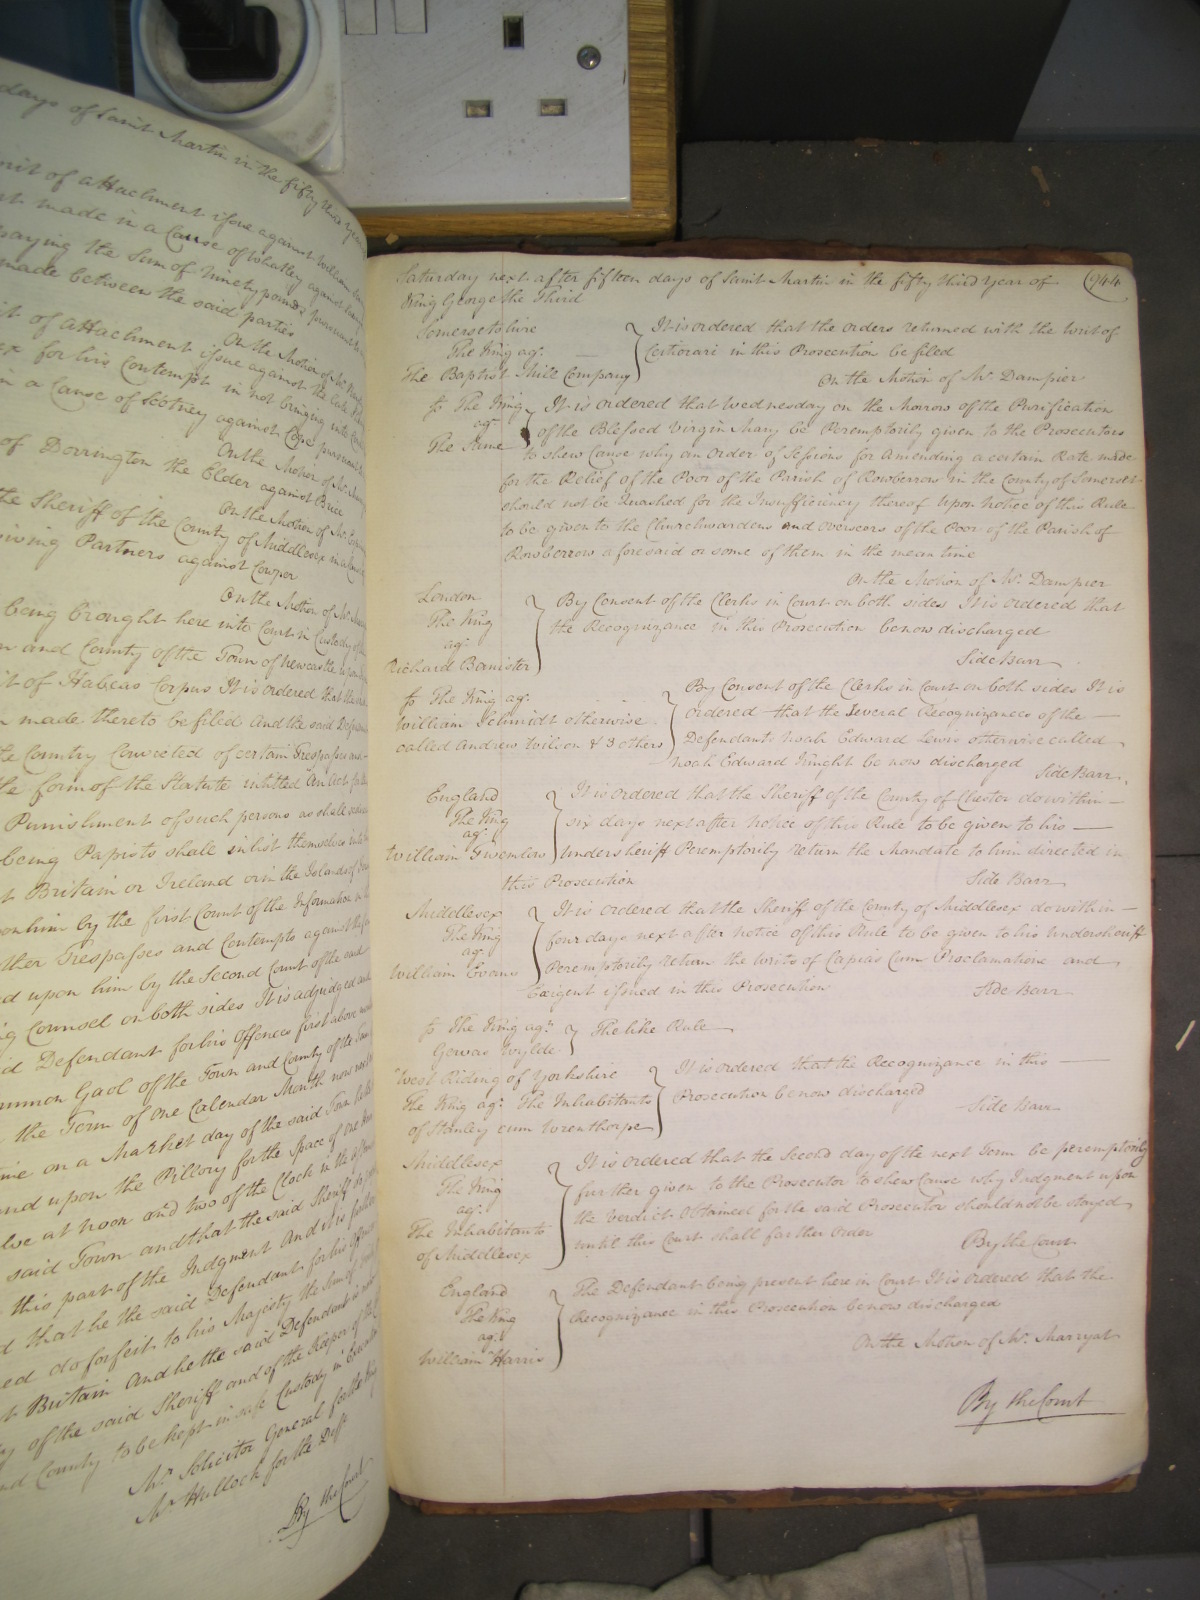 days of Saint Martin in the fifty third year
writ of attachment issue against William
made in a Cause of Whatley against
paying the Sum of Ninety pounds pursuant to
made between the said parties
On the Motion of Mr.
of attachment issue against the late
for his Contempt in not bringing into
in a Cause of Scotney against
On the Motion of Mr.
of Dorrington the Elder against Brice
On the Motion of Mr.
the Sheriff of the County of Middlesex in a Cause
Partners against Cowper
On the Motion of Mr.
being brought here into Court in Custody of
and County of the Town of Newcastle
of Habeas Corpus It is ordered that the
made thereto be filed And the said Defendant
the Country Convicted of certain Trespasses and
the form of the Statute intitled An Act for
Punishment of such persons as shall
being Papists shall inlist themselves
Britain or Ireland or in the Islands of
upon him by the first Count of the Information
other Trespasses and Contempts against the
upon him by the Second Count of the said
Counsel on both sides It is adjudged and
Defendant for his Offences first above
Common Gaol of the Town and County of the Town
the Term of one Calendar Month now next
time on a Market day of the said Town
and upon the Pillory for the Space of one hour
at noon and two of the Clock in the
said Town and that the said Sheriff do
this part of the Judgment And it is further
that he the said Defendant for his Offences
do forfeit to his Majesty the Sum of
Britain And he the said Defendant is
of the said Sheriff and of the Keeper of the
and County to be kept in safe Custody in
Mr. Solicitor General for the King
Mr. Hullock for the Deft
By the Court
Saturday next after fifteen days of Saint Martin in the fifty third Year of (944
King George the Third
Somersetshire
The King agt.
The Baptist Mill Company
It is ordered that the orders returned with the Writ of
Certiorari in this Prosecution be filed
On the Motion of Mr. Dampier
fs The King
agt
The Same
It is ordered that Wednesday on the Morrow of the Purification
of the Blessed Virgin Mary be Peremptorily given to the Prosecutors
to shew Cause why an Order of Sessions for Amending a certain Rate made
for the Relief of the Poor of the Parish of Rowberrow in the County of Somerset
should not be Quashed for the Insufficiency thereof Upon Notice of this Rule
to be given to the Churchwardens and Overseers of the Poor of the Parish of
Rowberrow aforesaid or some of them in the mean time
On the Motion of Mr. Dampier
London
The King
agt
Richard Banister
By Consent of the Clerks in Court on both sides It is ordered that
the Recognizance in this Prosecution be now discharged
Side Barr
fs The King agt.
William Schmidt otherwise
called Andrew Wilson & 3 others
By Consent of the Clerks in Court on both sides It is
ordered that the Several Recognizances of the
Defendants Noah Edward Lewis otherwise called
Noah Edward Knight be now discharged Side Barr
England
The King
agt
William Gwenlow
It is ordered that the Sheriff of the County of Chester do within
six days next after Notice of this Rule to be given to his
Undersheriff Peremptorily Return the Mandate to him directed in
this Prosecution Side Barr
Middlesex
The King
agt
William Evans
It is ordered that the Sheriff of the County of Middlesex do within
four days next after Notice of this Rule to be given to his Undersheriff
Peremptorily Return the Writs of Capias Cum Proclamatione and
Exigent issued in this Prosecution Side Barr
fs The King agt.
Gervas Wylde
The like Rule
West Riding of Yorkshire
The King agt. The Inhabitants
of Stanley cum Wrenthorpe
It is ordered that the Recognizance in this
Prosecution be now discharged
Side Barr
Middlesex
The King
agt
The Inhabitants
of Middlesex
It is ordered that the Second day of the next Term be peremptorily
further given to the Prosecutor to shew Cause why Judgment upon
the Verdict Obtained for the said Prosecutor should not be stayed
until this Court shall further Order
By the Court
England
The King
agt
William Harris
The Defendant being present here in Court It is ordered that the
Recognizance in this Prosecution be now discharged
On the Motion of Mr. Marryat
By the Court